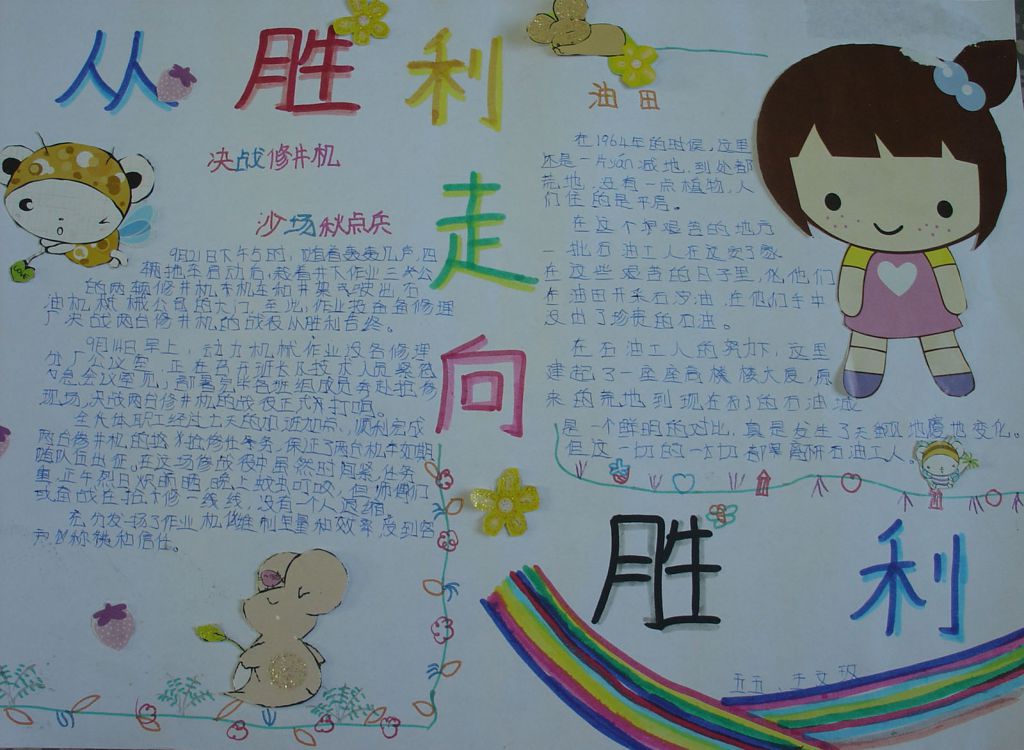 从胜利
走
向
胜
利
决战修井机
沙场秋点兵
9月21日下午5时,随着轰轰几声,四
辆拖车启动后,载着井下作业三大公
的两辆修井机车机在和井架驶出石
油机械械公司的大门,至此,作业设备备修理
厂决战两台修井机的战役从胜利告终。
9月14日早上,动力机械作业设备修理
分厂会议室,正在召开班长及技术人员紧急
紧急会议室见,部署完毕各班组成员奔赴抢修
现场,决战两台修井机的战役正式打响。
全大体职工经过七天的加班加点,顺利完成
两台修井机的抢修任务,保证了两台机车如期
随队伍出征。在这场修战役中虽然时间紧,任务
重,正午烈日炎晒,晚上蚊虫叮咬,但师傅们
或奋战在抢修一线线,没有一个人退缩。
充分发扬了作业机维利里量和效率,受到容
和称赞和信任。
油田
在1964年的时候,这里
还是一片yán减地,到处都
荒地,没有一点植物,人
们住的是平房。
在这个艰苦的地方
一批石油工人在这安了家
在这些艰苦的日子里,他他们
在油田开采石油,在他们手中
没出了珍贵的石油。
在石油工人的努力下,这里
建起了一座座高楼楼大厦,原
来的荒地到现在的石油城
是一个鲜明的对比,真是发生了天翻地覆地变化。
但这一切的一切都离开石油工人。
五五 王文